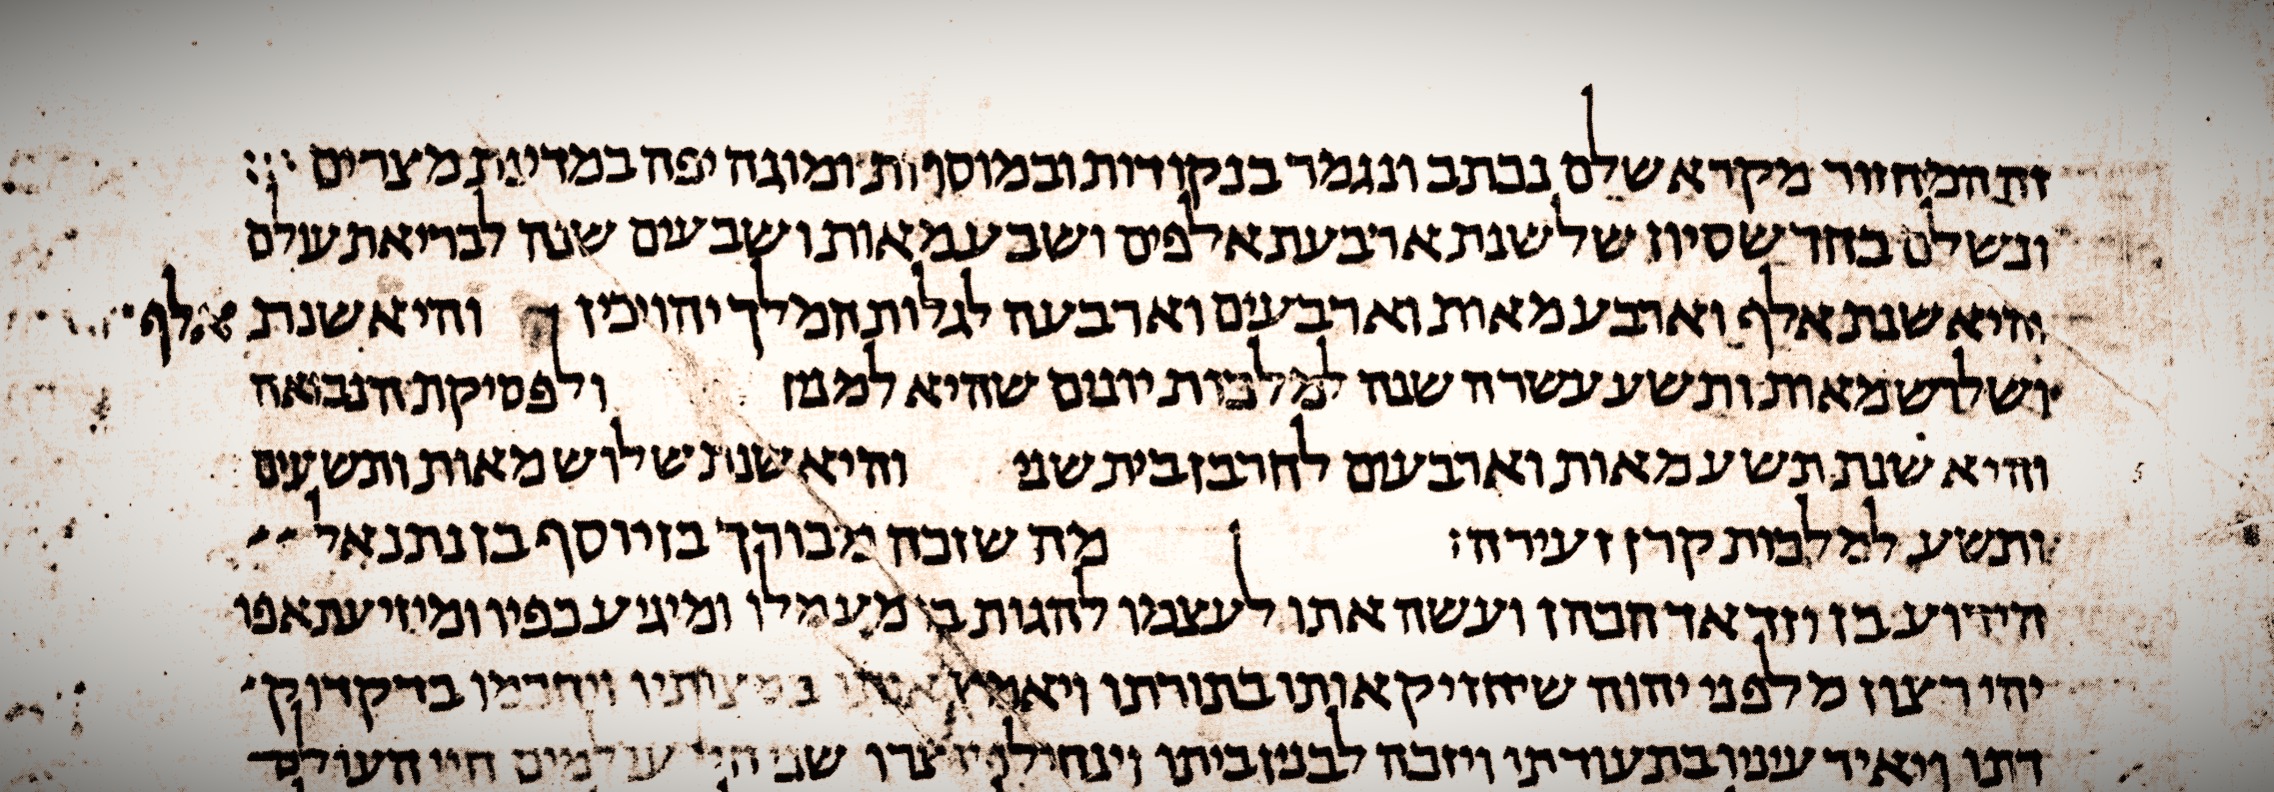 זה המחזור מקרא שלם נכתב ונגמר בנקודות ובמוסרות ומוגה יפה במדינת מצרים
ונשלם בחדש סיון של שנת ארבעת אלפים ושבע מאות ושבעים שנה לבריאת עולם
והיא שנת אלף וארבע מאות וארבעים וארבעה לגלות המלך יהויכין והיא שנת אלף
ושלוש מאות ותשע עשרה שנה למלכות יונים שהיא למנין ולפסיקת הנבואה
והיא שנת תשע מאות וארבעים לחרבן בית שני והיא שנת שלוש מאות ותשעים
ותשע למלכות קרן זעירה: מה שזכה מבורך בן יוסף בן נתנאל
הידוע בן וזדאד הכהן ועשה אתו לעצמו להגות בו מעמלו ומיגיע כפיו ומזיעת אפו
יהי רצון מלפני יהוה שיחזיק אותו בתורתו ויאמץ אותו במצותיו ויחכמו בדקדוק
דתו ויאיר עיניו בתעודתו ויזכה לבנין ביתו וינחילו יוצרו שני חיי עולמים חיי העולם